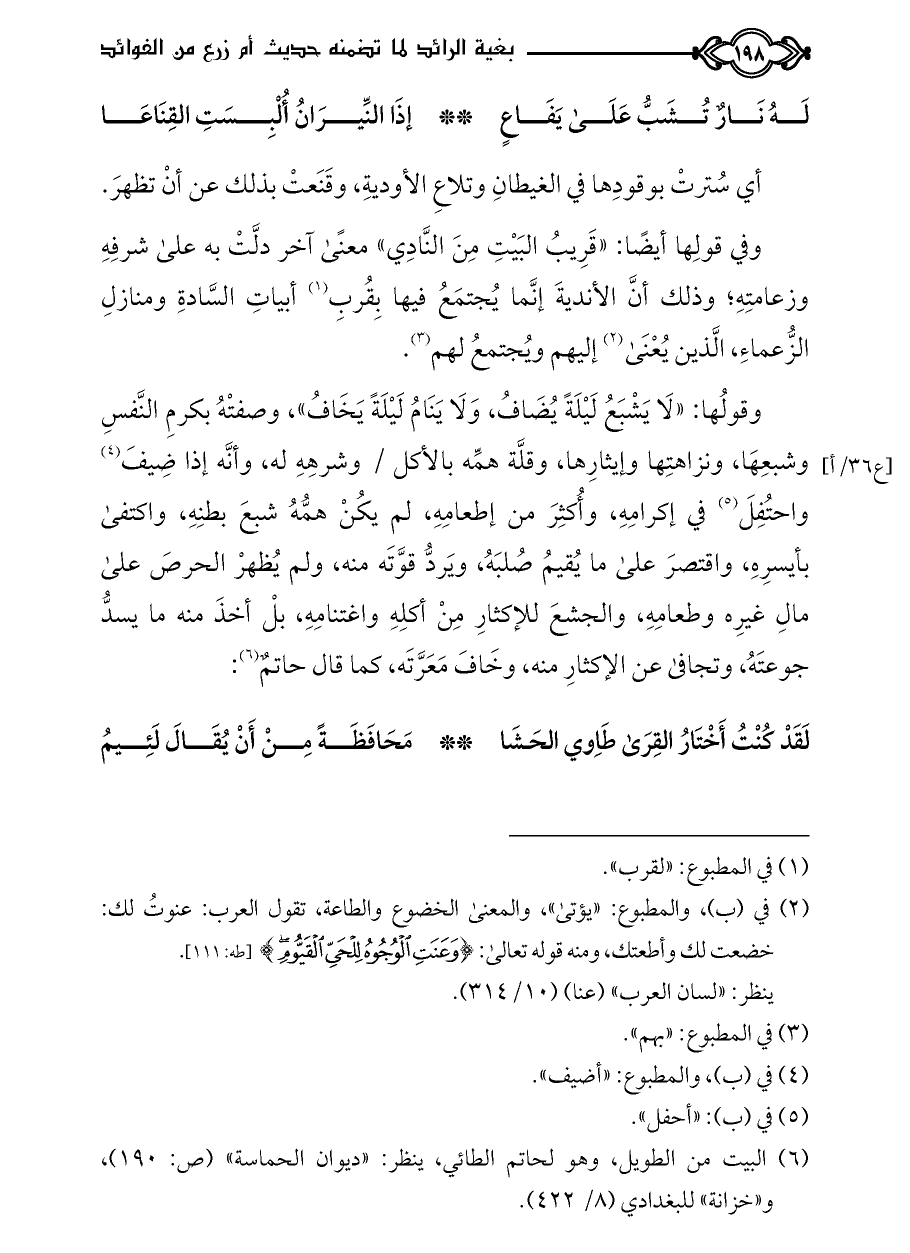 ١٩٨ بغية الرائد لما تضمنه حديث أم زرع من الفوائد
لَـهُ نَـارٌ تُـشَبُّ عَلَـىٰ يَفَـاعٍ ** إذَا النِّيـرَانُ أُلْبِـسَتِ القِنَاعَـا
أي سُترتْ بوقودِها في الغيطانِ وتلاعِ الأوديةِ، وقَنَعتْ بذلك عن أنْ تظهرَ.
وفي قولِها أيضًا: «قَرِيبُ البَيْتِ مِنَ النَّادِي» معنًىٰ آخر دلَّتْ به علىٰ شرفِهِ
وزعامتِهِ؛ وذلك أنَّ الأنديةَ إنَّما يُجتمَعُ فيها بِقُربِ(١) أبياتِ السَّادةِ ومنازلِ
الزُّعماءِ، الَّذين يُعْنَىٰ(٢) إليهم ويُجتمعُ لهم(٣).
وقولُها: «لَا يَشْبَعُ لَيْلَةً يُضَافُ، وَلَا يَنَامُ لَيْلَةً يَخَافُ»، وصفتْهُ بكرمِ النَّفسِ
[ع٣٦/أ] وشبعِهَا، ونزاهتِها وإيثارِها، وقلَّة همِّه بالأكل / وشرهِهِ له، وأنَّه إذا ضِيفَ(٤)
واحتُفِلَ(٥) في إكرامِهِ، وأُكثِرَ من إطعامِهِ، لم يكُنْ همُّهُ شبعَ بطنِهِ، واكتفىٰ
بأيسرِهِ، واقتصرَ علىٰ ما يُقيمُ صُلبَهُ، ويَردُّ قوَّتَه منه، ولم يُظهرْ الحرصَ علىٰ
مالِ غيرِه وطعامِهِ، والجشعَ للإكثارِ مِنْ أكلِهِ واغتنامِهِ، بلْ أخذَ منه ما يسدُّ
جوعتَهُ، وتجافىٰ عن الإكثارِ منه، وخَافَ مَعَرَّتَه، كما قال حاتمٌ(٦):
لَقَدْ كُنْتُ أَخْتَارُ القِرَىٰ طَاوِي الحَشَا ** مَحَافَظَـةً مِـنْ أَنْ يُقَـالَ لَئِـيمُ
(١) في المطبوع: «لقرب».
(٢) في (ب)، والمطبوع: «يؤتىٰ»، والمعنىٰ الخضوع والطاعة، تقول العرب: عنوتُ لك:
خضعت لك وأطعتك، ومنه قوله تعالىٰ: ﴿وَعَنَتِ ٱلْوُجُوهُ لِلْحَيِّ ٱلْقَيُّومِ ۖ﴾ [طه: ١١١].
ينظر: «لسان العرب» (عنا) (١٠/ ٣١٤).
(٣) في المطبوع: «بهم».
(٤) في (ب)، والمطبوع: «أضيف».
(٥) في (ب): «أحفل».
(٦) البيت من الطويل، وهو لحاتم الطائي، ينظر: «ديوان الحماسة» (ص: ١٩٠)،
و«خزانة» للبغدادي (٨/ ٤٢٢).